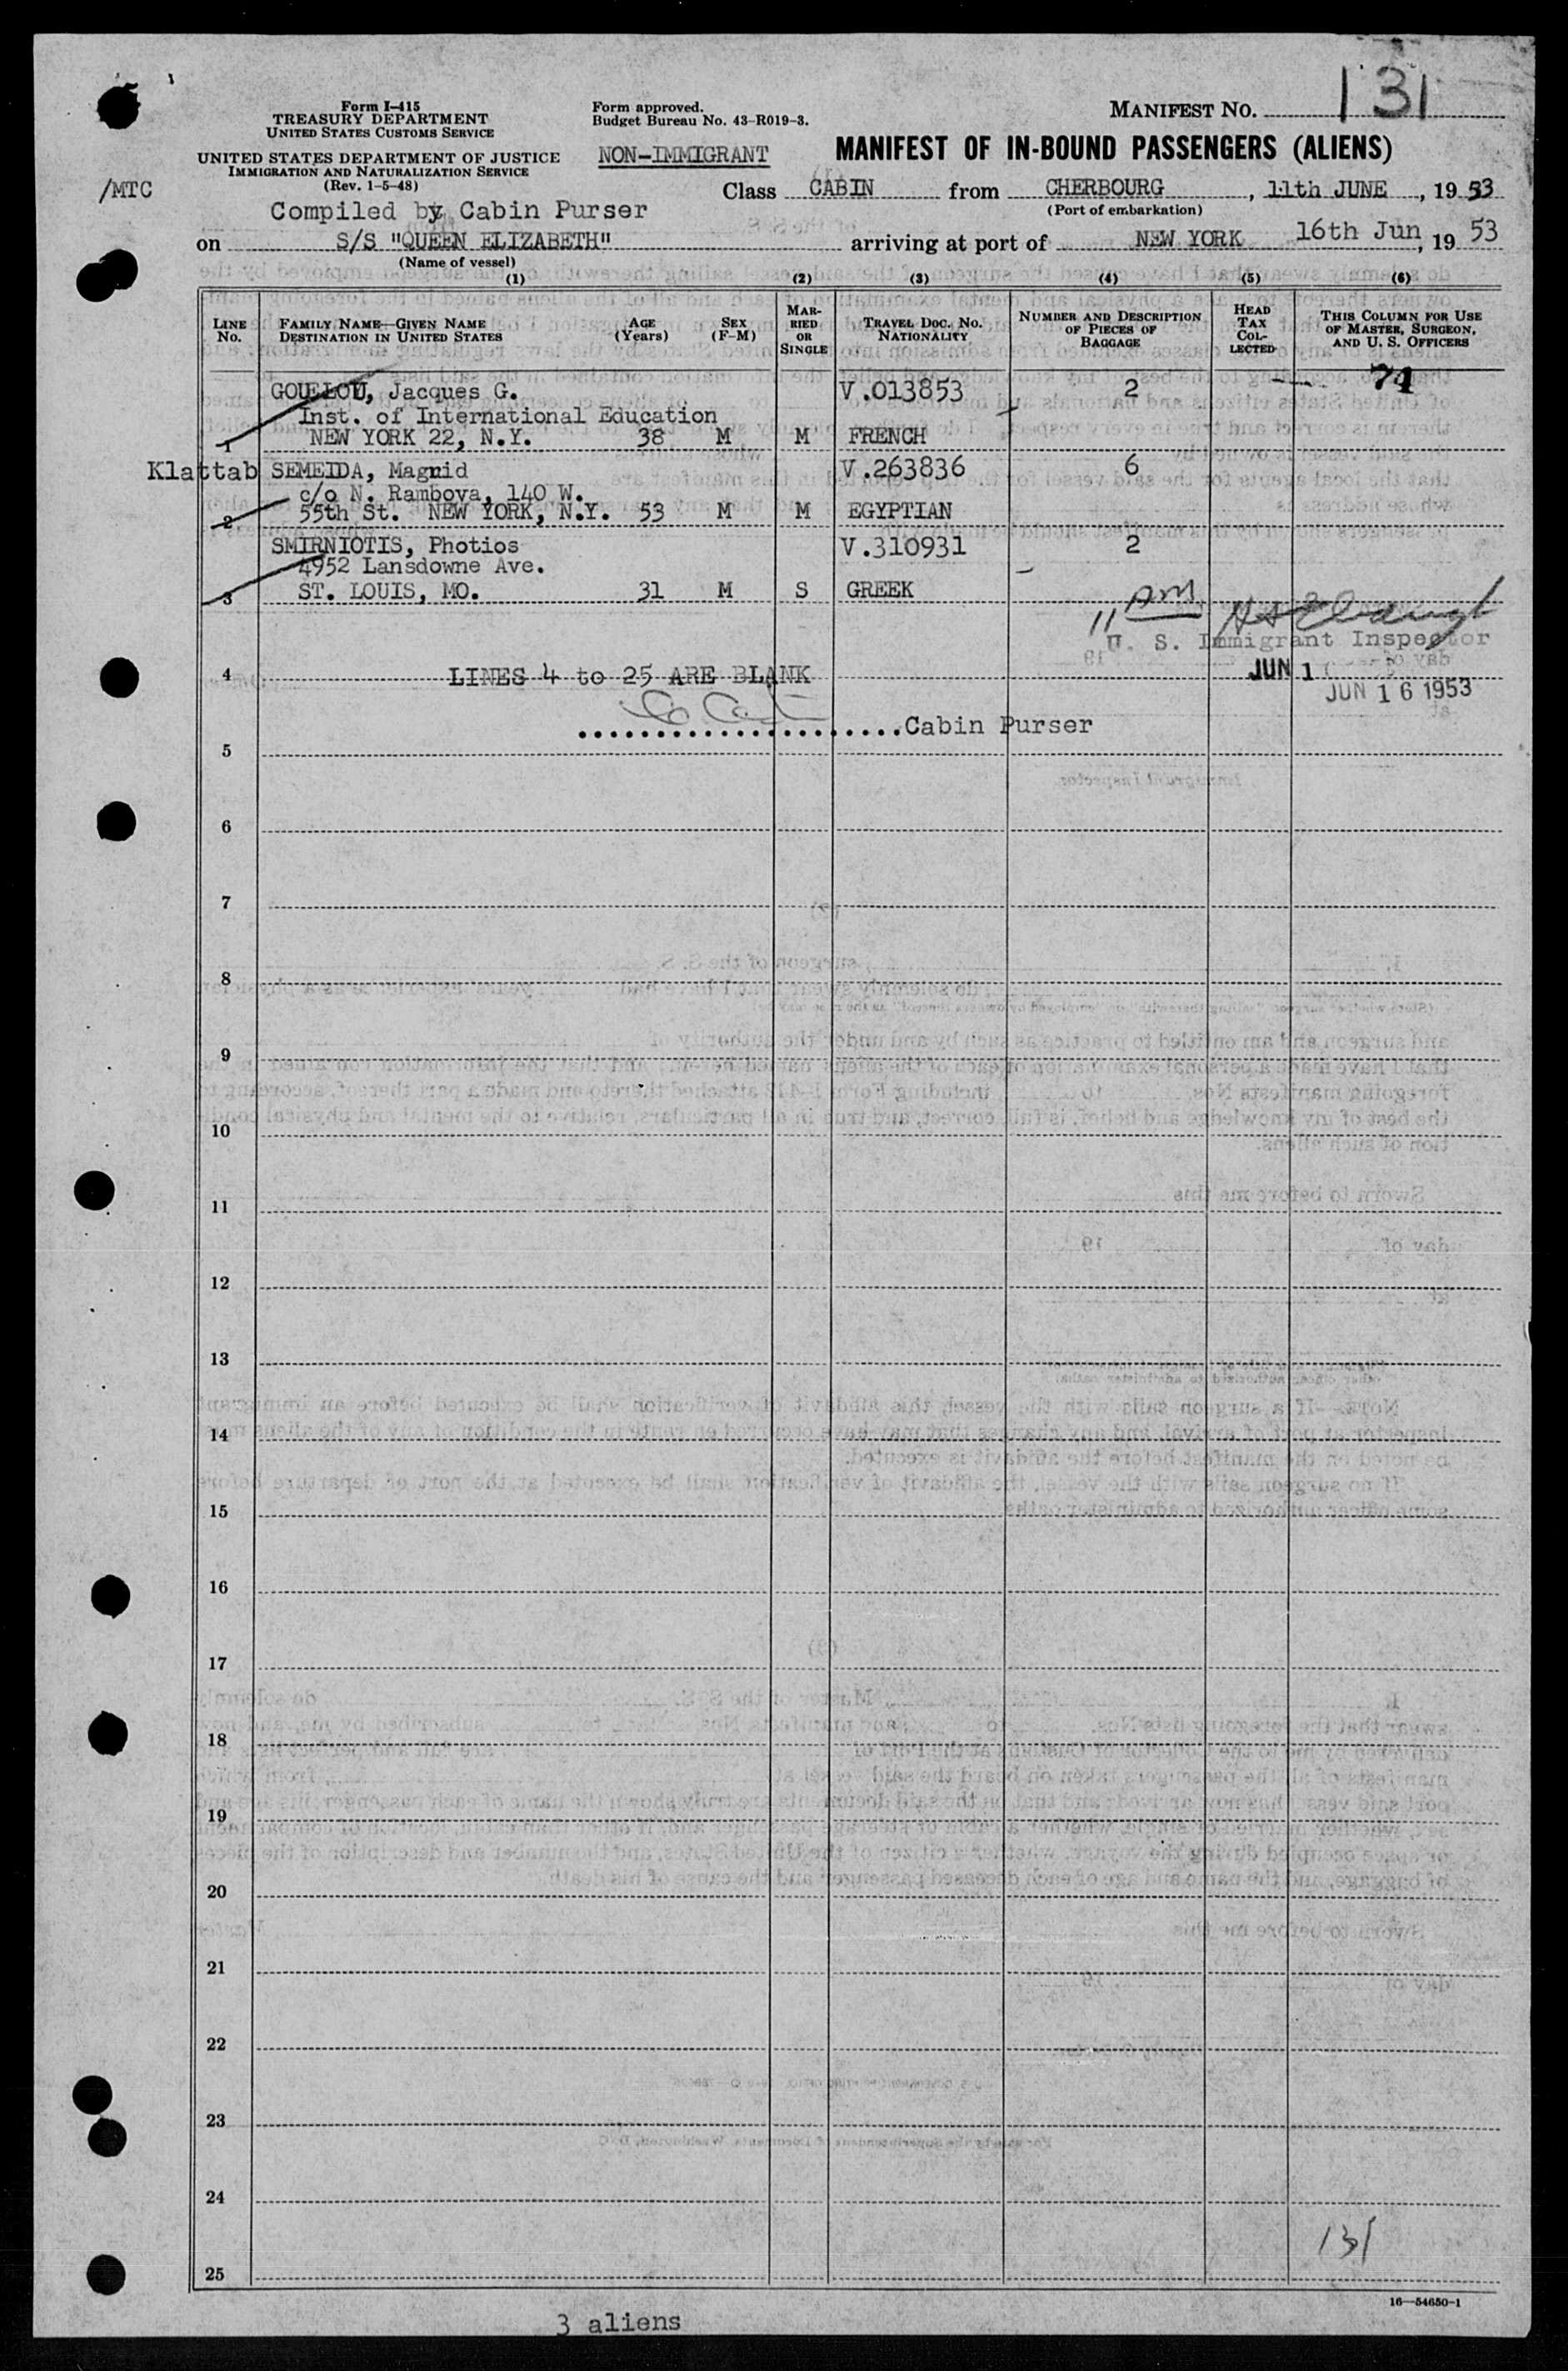 131
Form I-415
TREASURY DEPARTMENT
UNITED STATES CUSTOMS SERVICE
UNITED STATES DEPARTMENT OF JUSTICE
IMMIGRATION AND NATURALIZATION SERVICE
(Rev. 1-5-48)
/MTC
Form approved.
Budget Bureau No. 43-R019-3.
NON-IMMIGRANT
MANIFEST NO.
MANIFEST OF IN-BOUND PASSENGERS (ALIENS)
Class CABIN from CHERBOURG, 11th JUNE, 1953
(Port of embarkation)
Compiled by Cabin Purser
on S/S "QUEEN ELIZABETH" arriving at port of NEW YORK 16th Jun, 19 53
(Name of vessel)
(1) (2) (3) (4) (5) (6)
LINE No. FAMILY NAME—GIVEN NAME DESTINATION IN UNITED STATES AGE (Years) SEX (F-M) MARRIED OR SINGLE TRAVEL DOC. NO. NATIONALITY NUMBER AND DESCRIPTION OF PIECES OF BAGGAGE HEAD TAX COLLECTED THIS COLUMN FOR USE OF MASTER, SURGEON, AND U. S. OFFICERS
74
GOUELOU, Jacques G. V.013853 2
Inst. of International Education
1 NEW YORK 22, N.Y. 38 M M FRENCH
Klattab SEMEIDA, Maguid V.263836 6
c/o N. Rambova, 140 W.
2 55th St. NEW YORK, N.Y. 53 M M EGYPTIAN
SMIRNIOTIS, Photios V.310931 2
4952 Lansdowne Ave.
3 ST. LOUIS, MO. 31 M S GREEK
11 AM
U. S. Immigrant Inspector
JUN 1
JUN 16 1953
4 LINES 4 to 25 ARE BLANK
Cabin Purser
5
6
7
8
9
10
11
12
13
14
15
16
17
18
19
20
21
22
23
24
131
25
16—54650-1
3 aliens